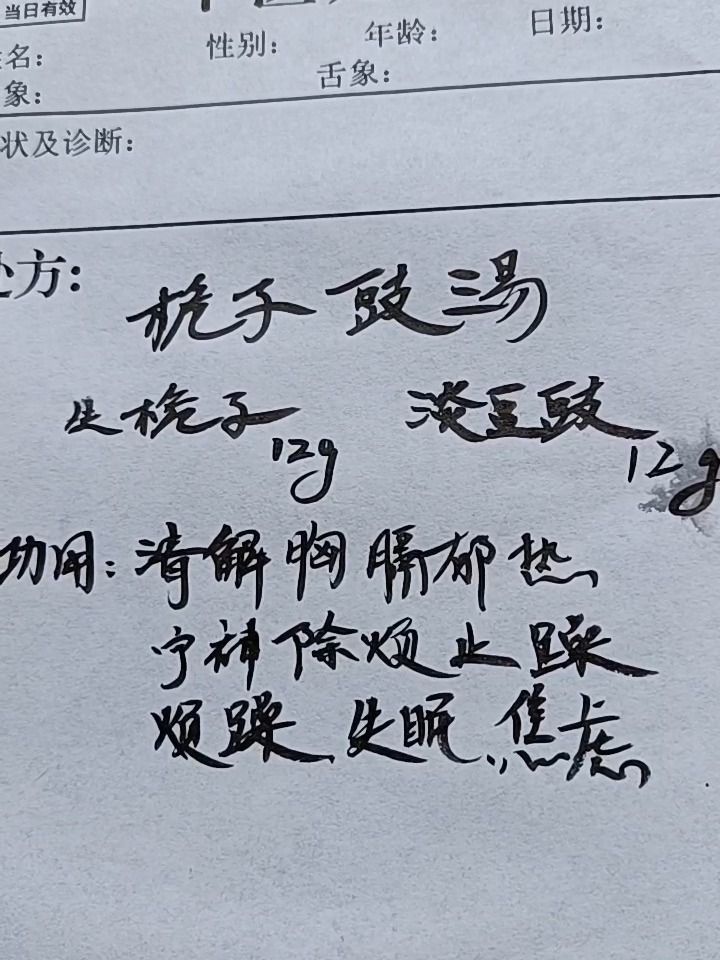 当日有效
名： 性别： 年龄： 日期：
象： 舌象：
状及诊断：
处方：
栀子豉湯
生栀子12g 淡豆豉12g
功用：清解胸膈郁热
宁神除烦止躁
烦躁、失眠、焦虑